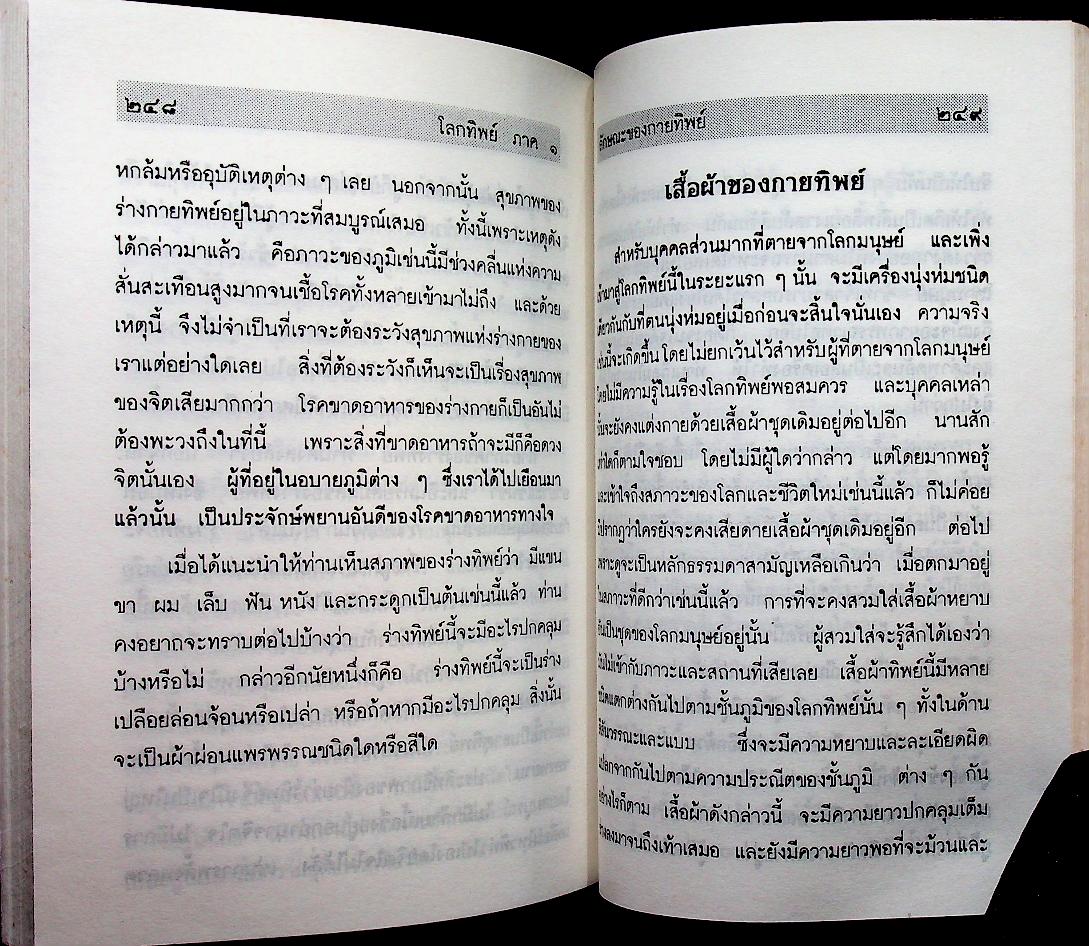 ๒๔๘
โลกทิพย์ ภาค ๑
หกล้มหรืออุบัติเหตุต่าง ๆ เลย นอกจากนั้น สุขภาพของ
ร่างกายทิพย์อยู่ในภาวะที่สมบูรณ์เสมอ ทั้งนี้เพราะเหตุดัง
ได้กล่าวมาแล้ว คือภาวะของภูมิเช่นนี้มีช่วงคลื่นแห่งความ
สั่นสะเทือนสูงมากจนเชื้อโรคทั้งหลายเข้ามาไม่ถึง และด้วย
เหตุนี้ จึงไม่จำเป็นที่เราจะต้องระวังสุขภาพแห่งร่างกายของ
เราแต่อย่างใดเลย สิ่งที่ต้องระวังก็เห็นจะเป็นเรื่องสุขภาพ
ของจิตเสียมากกว่า โรคขาดอาหารของร่างกายก็เป็นอันไม่
ต้องพะวงถึงในที่นี้ เพราะสิ่งที่ขาดอาหารถ้าจะมีก็คือดวง
จิตนั้นเอง ผู้ที่อยู่ในอบายภูมิต่าง ๆ ซึ่งเราได้ไปเยือนมา
แล้วนั้น เป็นประจักษ์พยานอันดีของโรคขาดอาหารทางใจ
เมื่อได้แนะนำให้ท่านเห็นสภาพของร่างทิพย์ว่า มีแขน
ขา ผม เล็บ ฟัน หนัง และกระดูกเป็นต้นเช่นนี้แล้ว ท่าน
คงอยากจะทราบต่อไปบ้างว่า ร่างทิพย์นี้จะมีอะไรปกคลุม
บ้างหรือไม่ กล่าวอีกนัยหนึ่งก็คือ ร่างทิพย์นี้จะเป็นร่าง
เปลือยล่อนจ้อนหรือเปล่า หรือถ้าหากมีอะไรปกคลุม สิ่งนั้น
จะเป็นผ้าผ่อนแพรพรรณชนิดใดหรือสีใด
ลักษณะของกายทิพย์
๒๔๙
เสื้อผ้าของกายทิพย์
สำหรับบุคคลส่วนมากที่ตายจากโลกมนุษย์ และเพิ่ง
เข้ามาสู่โลกทิพย์นี้ในระยะแรก ๆ นั้น จะมีเครื่องนุ่งห่มชนิด
เดียวกันกับที่ตนนุ่งห่มอยู่เมื่อก่อนจะสิ้นใจนั่นเอง ความจริง
เช่นนี้จะเกิดขึ้น โดยไม่ยกเว้นไว้สำหรับผู้ที่ตายจากโลกมนุษย์
โดยไม่มีความรู้ในเรื่องโลกทิพย์พอสมควร และบุคคลเหล่า
นั้นจะยังคงแต่งกายด้วยเสื้อผ้าชุดเดิมอยู่ต่อไปอีก นานสัก
เท่าใดก็ตามใจชอบ โดยไม่มีผู้ใดว่ากล่าว แต่โดยมากพอรู้
และเข้าใจถึงสภาวะของโลกและชีวิตใหม่เช่นนี้แล้ว ก็ไม่ค่อย
ปรากฏว่าใครยังจะคงเสียดายเสื้อผ้าชุดเดิมอยู่อีก ต่อไป
เพราะดูจะเป็นหลักธรรมดาสามัญเหลือเกินว่า เมื่อตกมาอยู่
ในสภาวะที่ดีกว่าเช่นนี้แล้ว การที่จะคงสวมใส่เสื้อผ้าหยาบ
อันเป็นชุดของโลกมนุษย์อยู่นั้น ผู้สวมใส่จะรู้สึกได้เองว่า
มันไม่เข้ากับภาวะและสถานที่เสียเลย เสื้อผ้าทิพย์นี้มีหลาย
ชนิดแตกต่างกันไปตามชั้นภูมิของโลกทิพย์นั้น ๆ ทั้งในด้าน
สีสันวรรณะและแบบ ซึ่งจะมีความหยาบและละเอียดผิด
แปลกจากกันไปตามความประณีตของชั้นภูมิ ต่าง ๆ กัน
อย่างไรก็ตาม เสื้อผ้าดังกล่าวนี้ จะมีความยาวปกคลุมเต็ม
ร่างลงมาจนถึงเท้าเสมอ และยังมีความยาวพอที่จะม้วนและ